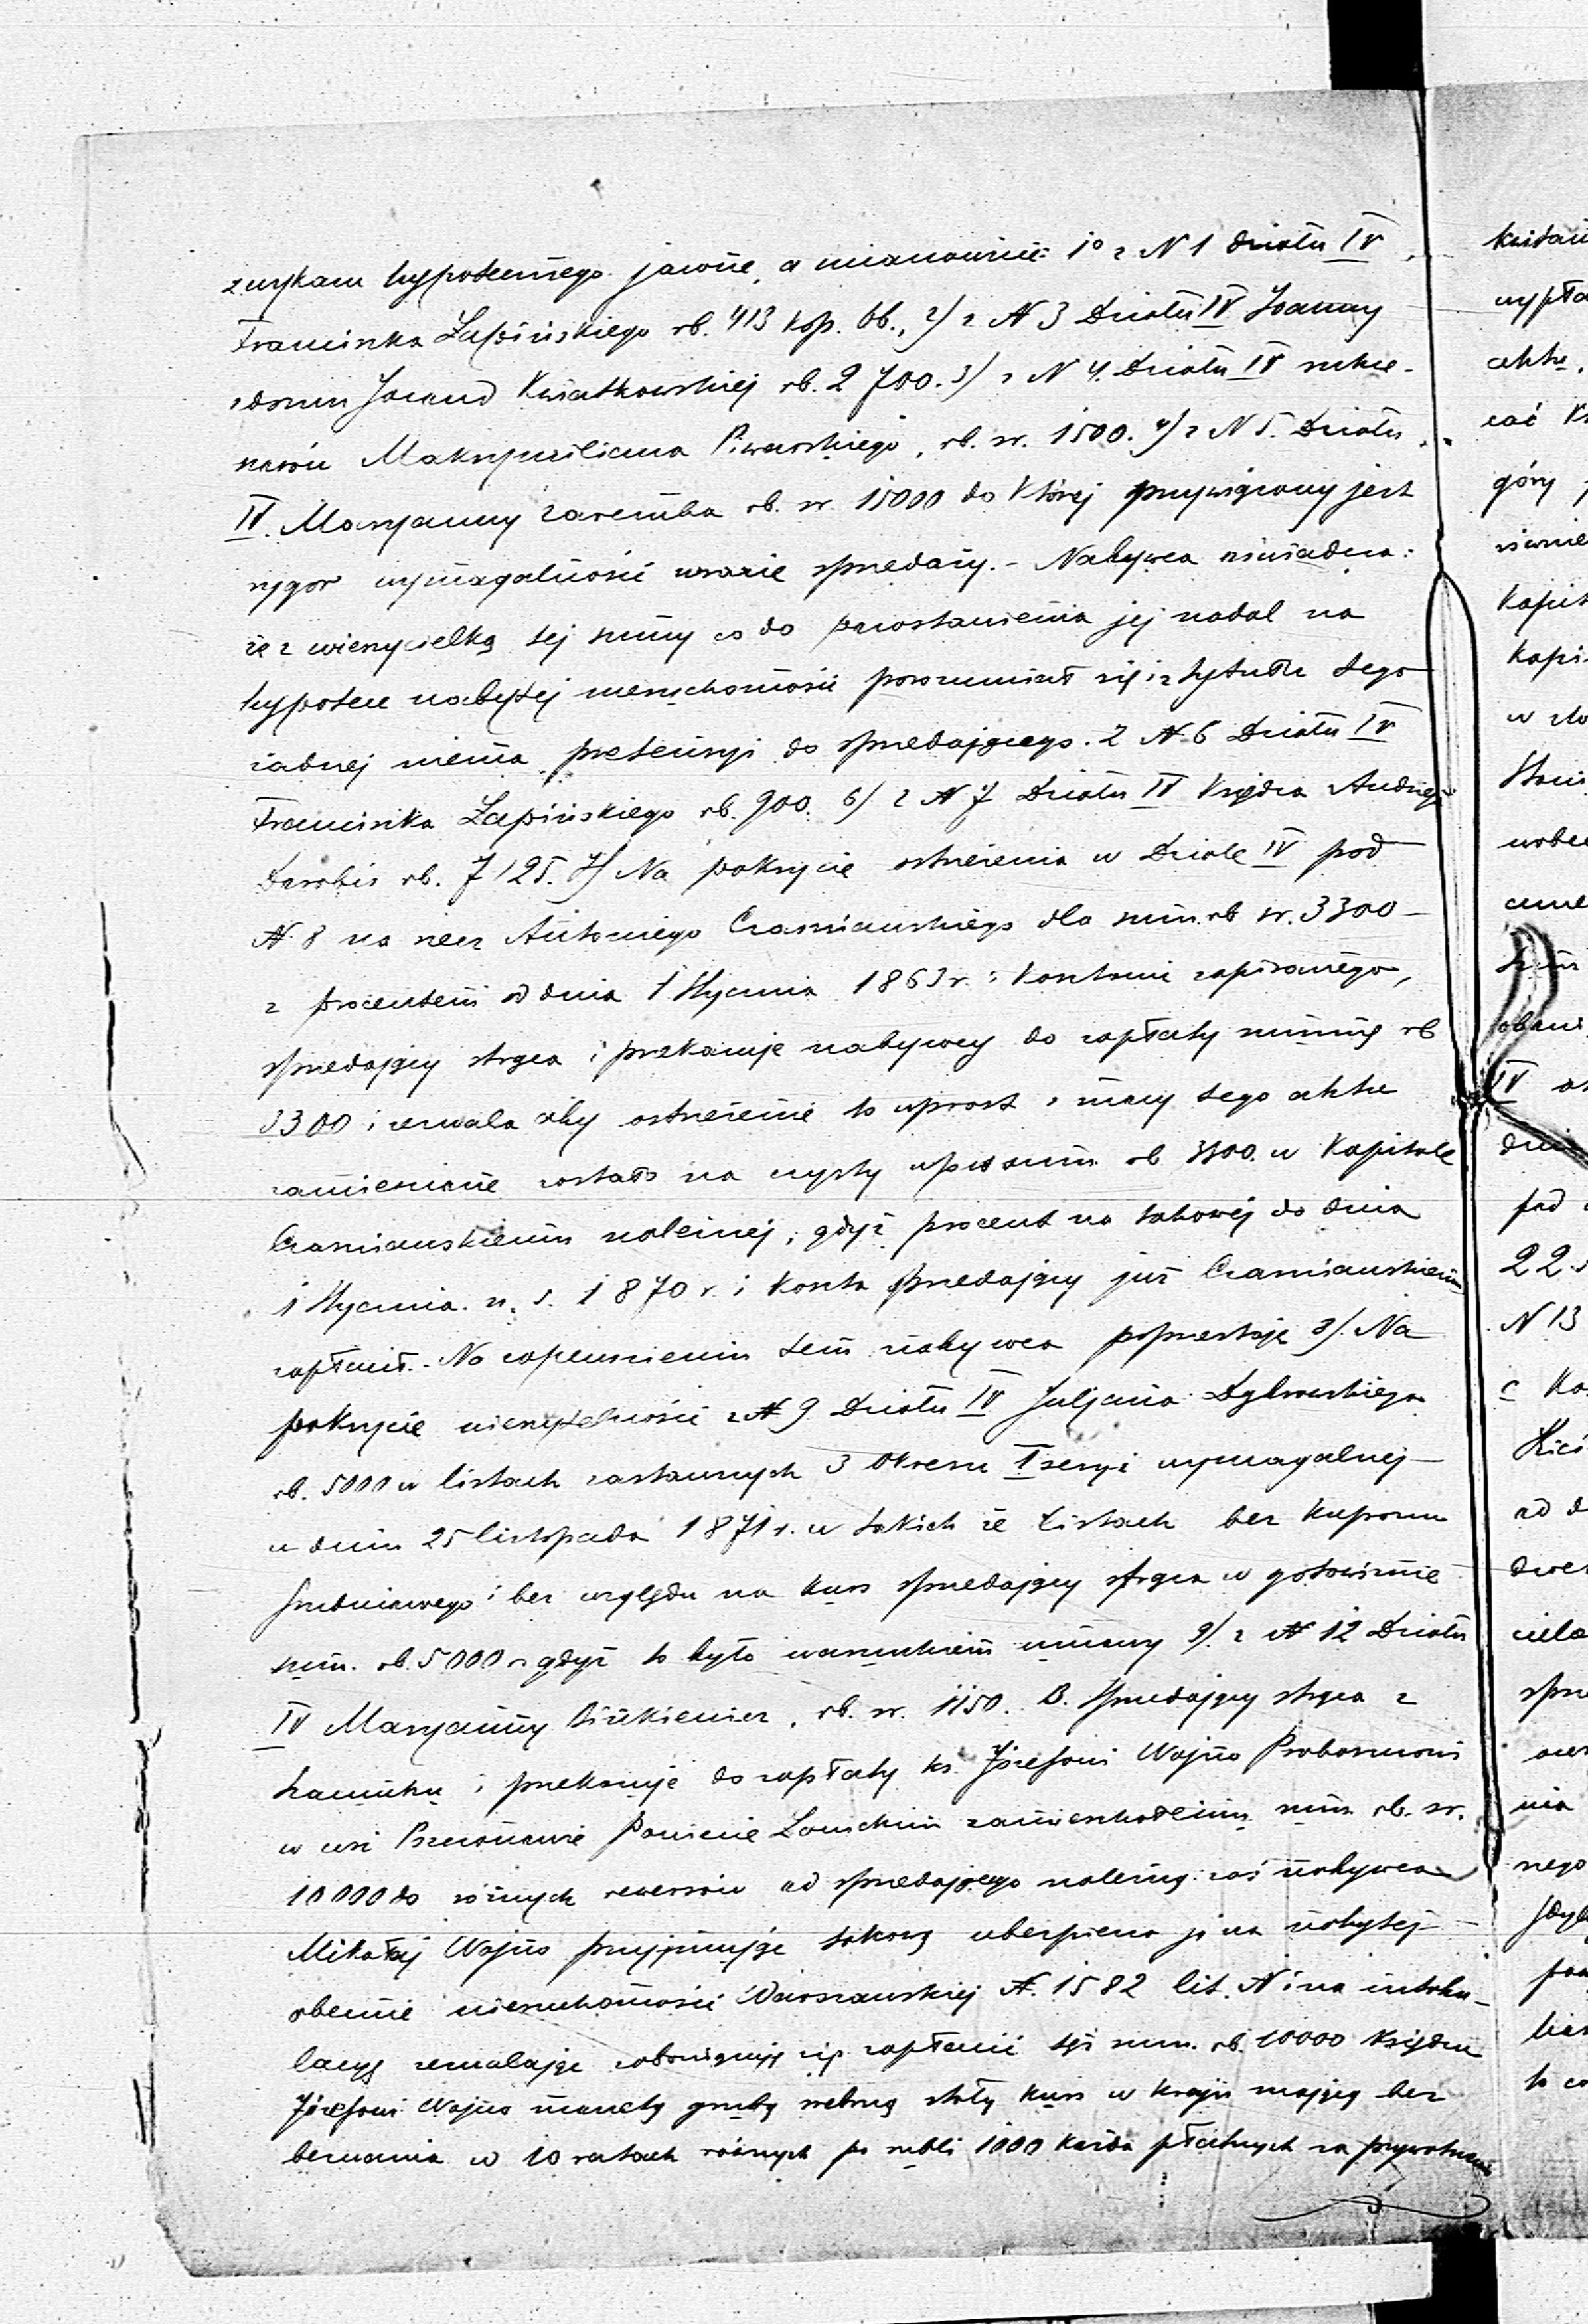 z wykazu hypotecznego jawne, a mianowicie: 1º z N 1 działu IV
Franciszka Łapińskiego rb. 413 kop. 66., 2) z N 3 Działu IV Joanny
Kwiatkowskiej rb. 2700. 3) z N 4. Działu IV sukce-
sorów Maksymiliana Piwarskiego, rb. sr. 1500. 4) z N 5. Działu
IV. Maryanny Zaremba rb. sr. 15000 do której przywiązany jest
rygor wymagalności w razie sprzedaży. - Nabywca oświadcza:
że z wierzycielką tej summy co do pozostawienia jej nadal na
hypotece nabytej nieruchomości porozumiał się i z tytułu tego
żadnej niema pretensyi do sprzedającego. Z N 6 Działu IV
Franciszka Łapińskiego rb. 900. 6) z N 7 Działu IV Księdza Andrzeja
rb. 7125. 7) Na pokrycie ostrzeżenia w Dziale IV pod
N. 8 na rzecz Antoniego Czarniawskiego dla sum. rb sr. 3300
z procentem od dnia 1 Stycznia 1863 r. i kosztami zapisanego,
sprzedający strąca i przekazuje nabywcy do zapłaty summę rb
3300 i zezwala aby ostrzeżenie to wprost z mocy tego aktu
zamienione zostało na czysty wpis sum. rb 3300. w kapitale
Czarniawskiemu należnej, gdyż procent na takowej do dnia
1 Stycznia n. s. 1870 r. i koszta sprzedający już Czarniawskiemu
zapłacił. - Na zapewnieniu tem nabywca poprzestaje 8). Na
pokrycie wierzytelności z N 9 Działu IV Juljana
rb. 5000 w listach zastawnych 3 Okresu I seryi wymagalnej
w dniu 25 listopada 1871 r. w takich że Listach bez kuponu
Grudniowego i bez względu na kurs sprzedający strąca w gotowiźnie
sum. rb. 5000 gdyż to było warunkiem umowy 9). z N 12 Działu
IV Maryanny, rb. sr. 1150. B. Sprzedający strąca z
szacunku i przekazuje do zapłaty ks. Józefowi Wojno Proboszczowi
w wsi Powiecie Łowickim zamieszkałemu sum. rb. sr.
10000 do różnych rewersów od sprzedającego należną zaś nabywca
Mikołaj Wojno przyjmując takową ubezpiecza ją na nabytej
obecnie nieruchomości Warszawskiej N. 1582 lit. N i na intabu-
lacyą zezwalając zobowiązuje się zapłacić tęż sum. rb. 10000 księdzu
Józefowi Wojno monetą grubą srebrną stały kurs w kraju mającą bez
w 10 ratach równych po rubli 1000 każda płatnych za prywatnemi